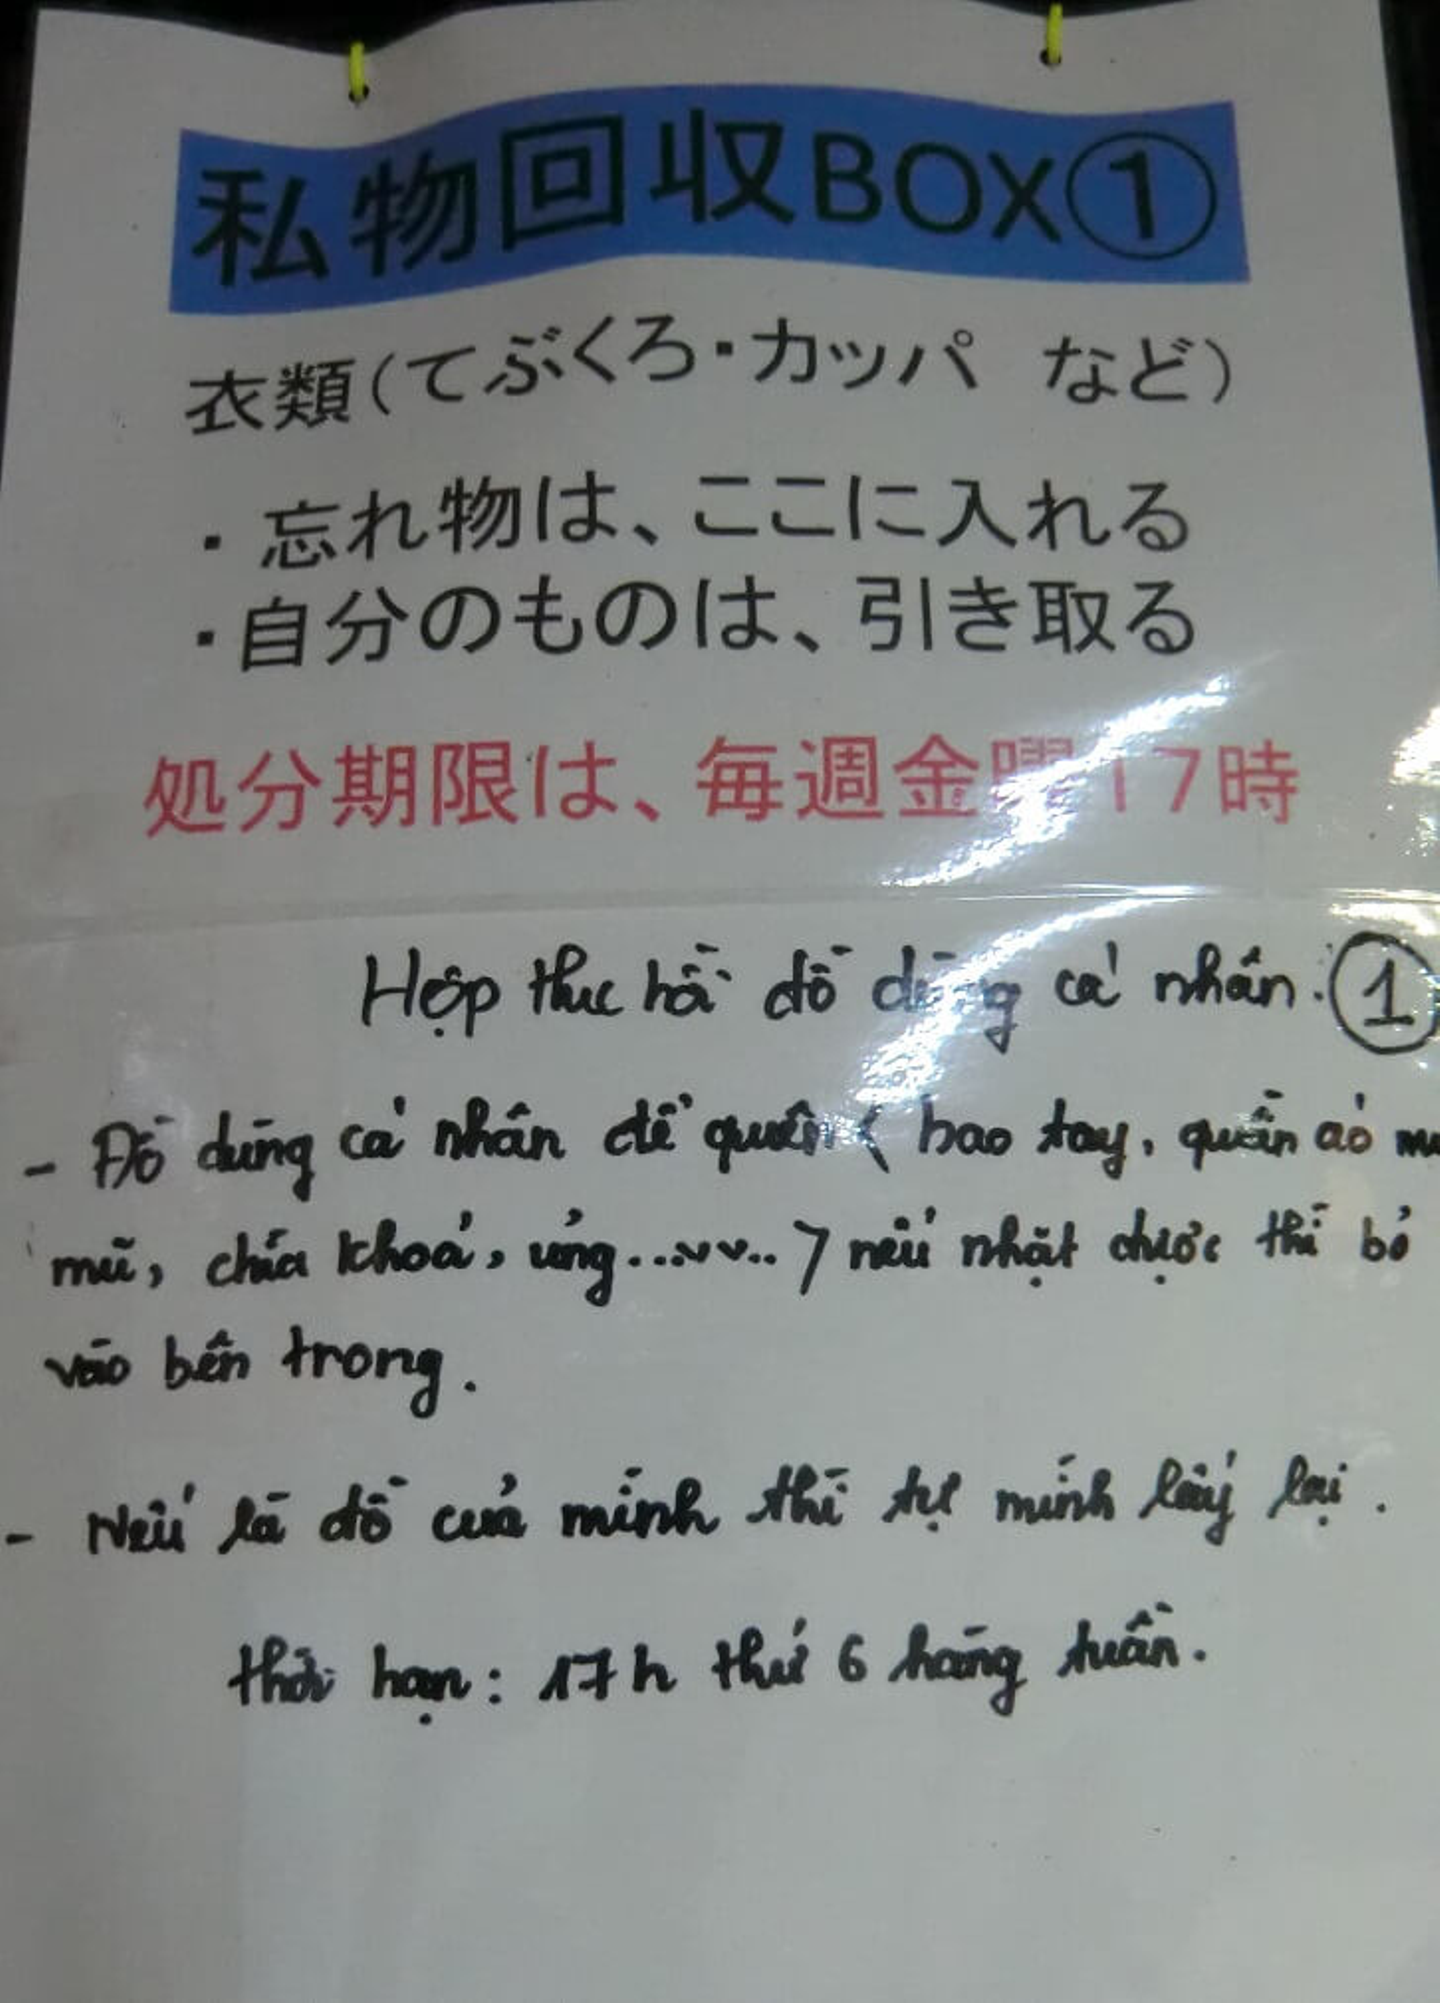 私物回収BOX①
衣類(てぶくろ・カッパ など)
・忘れ物は、ここに入れる
・自分のものは、引き取る
処分期限は、毎週金曜17時
Hộp thu hồi đồ dùng cá nhân. ①
- Đồ dùng cá nhân để quên < bao tay, quần áo
mũ, chìa khoá, ủng...vv.. > nếu nhặt được thì bỏ
vào bên trong.
- Nếu là đồ của mình thì tự mình lấy lại.
thời hạn: 17h thứ 6 hàng tuần.